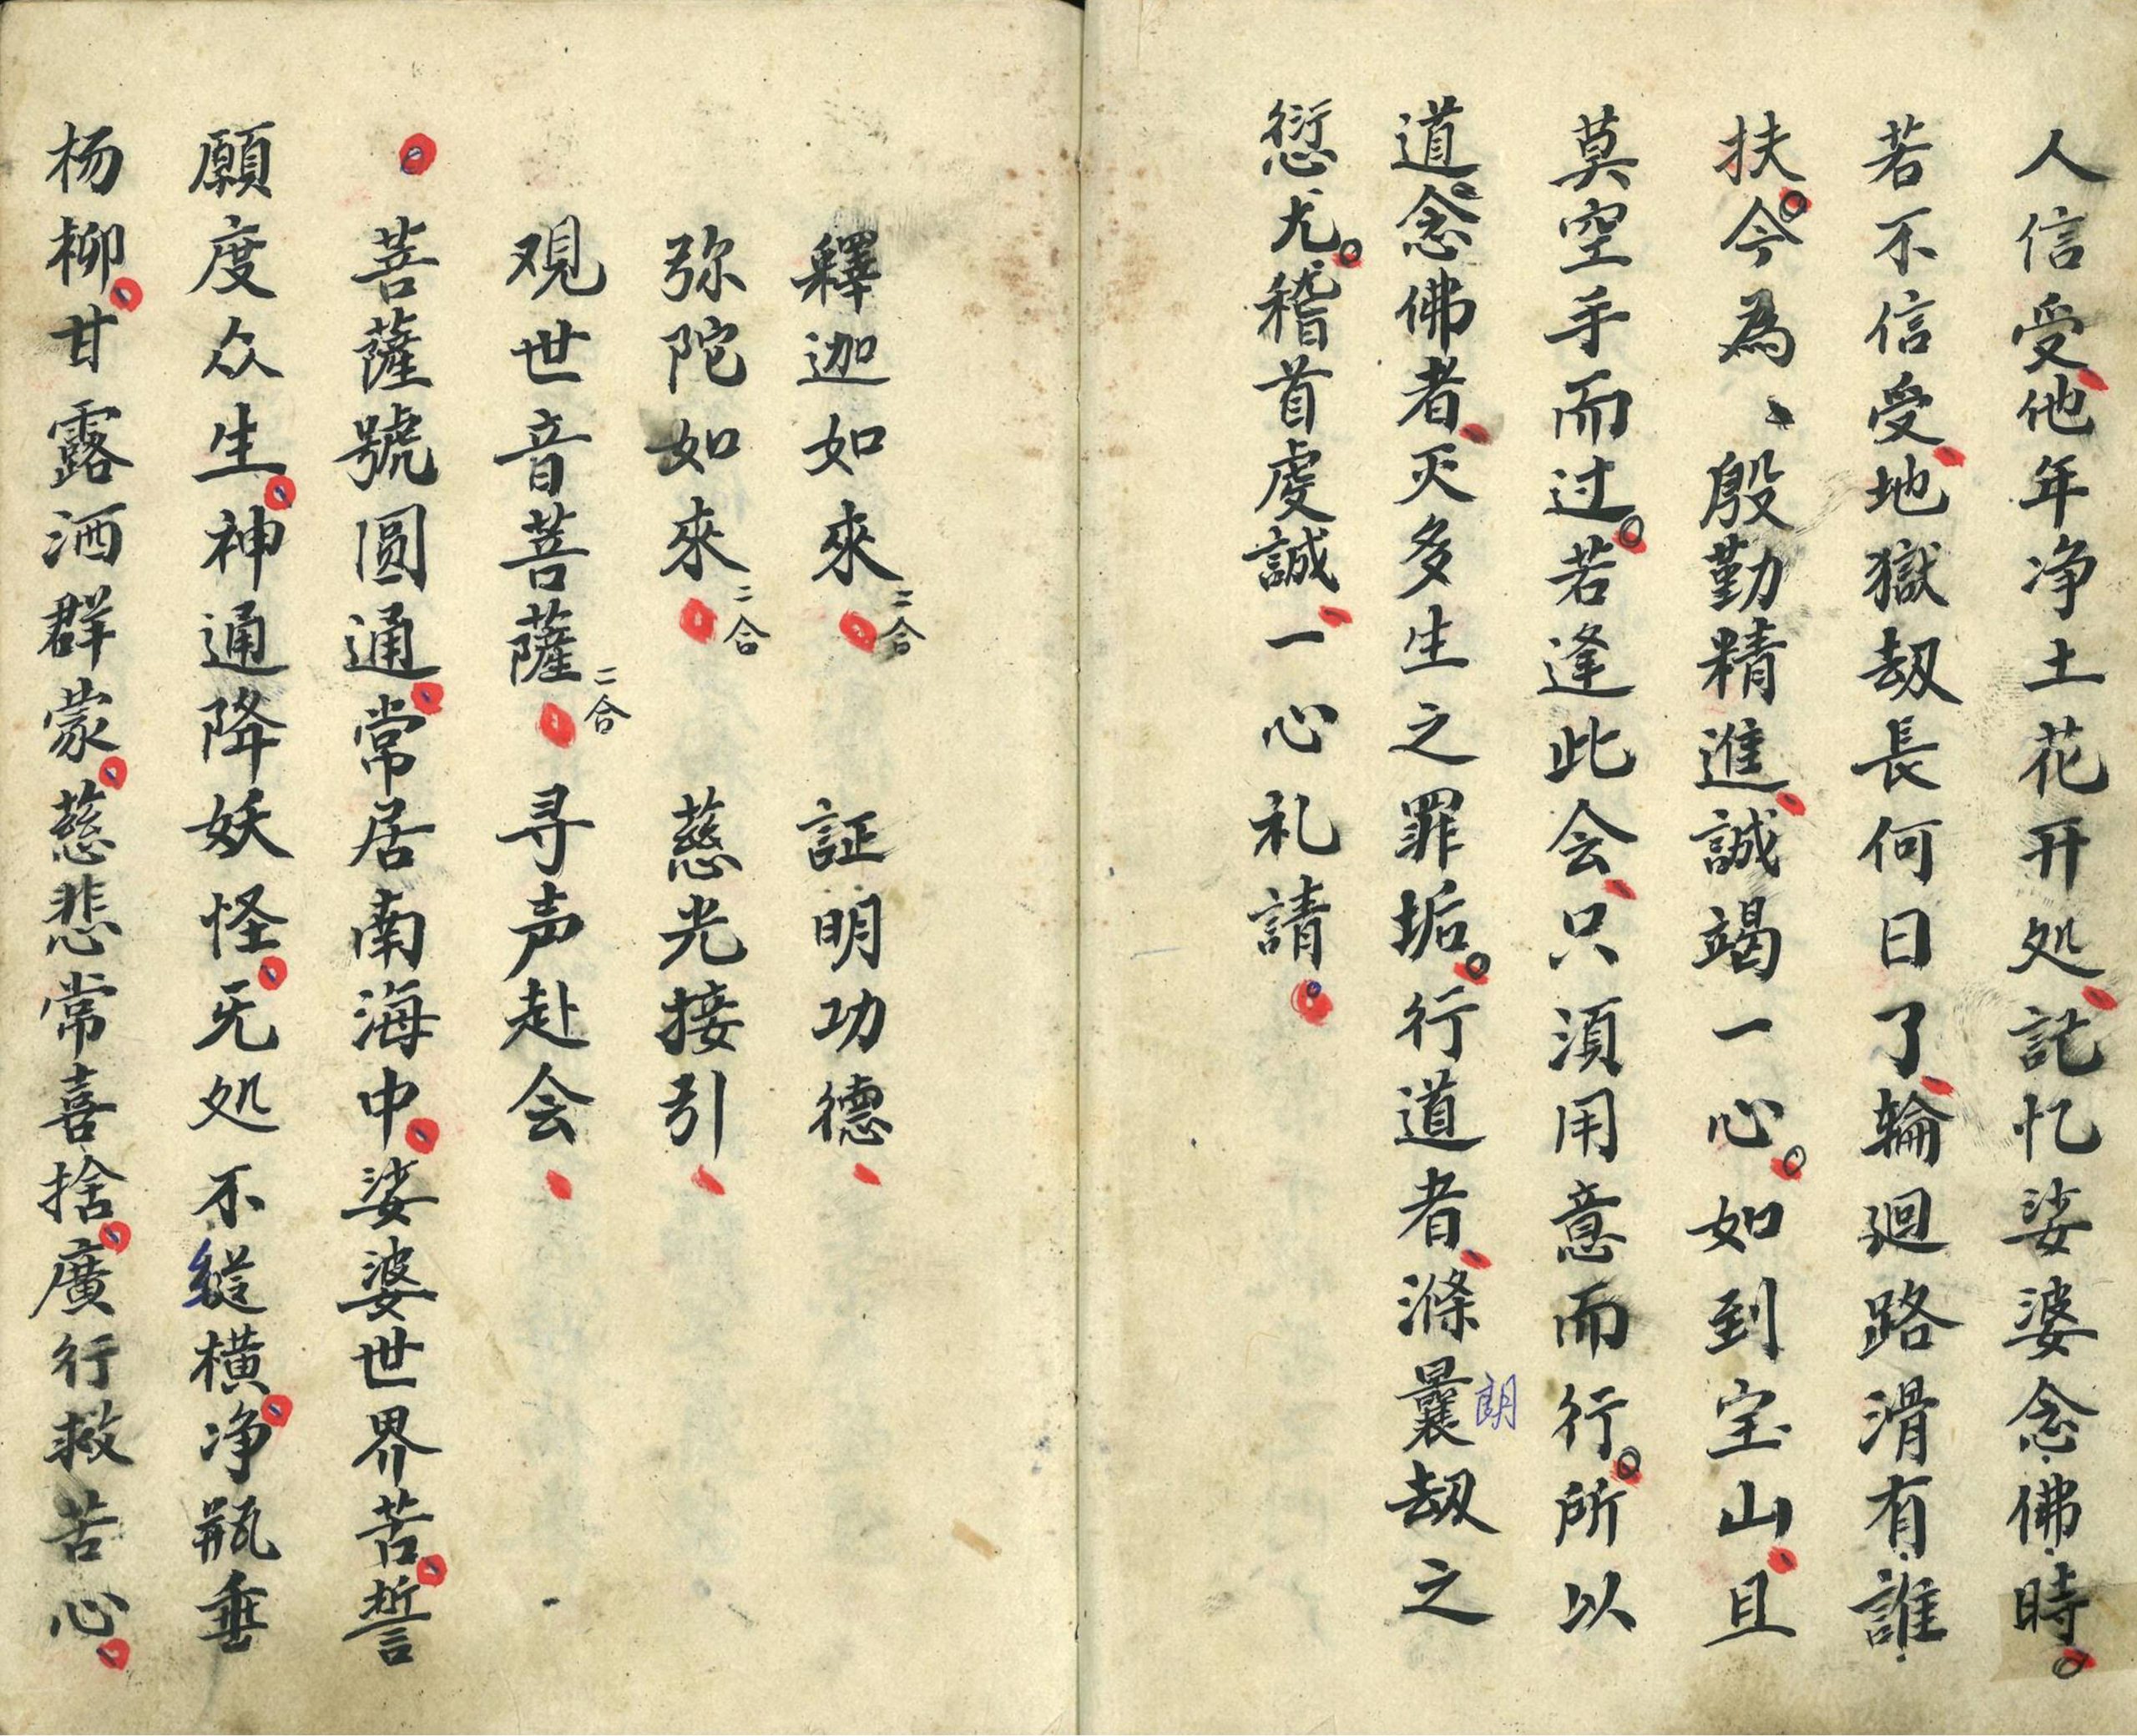 人信受他年净土花开处記忆娑婆念佛時
若不信受地獄刼長何日了輪廻路滑有誰
扶今為、殷勤精進誠竭一心如到宝山且
莫空手而过若逢此会只湏用意而行所以
道念佛者灭多生之罪垢行道者滌曩刼之
朗
愆尤稽首虔誠一心礼請
釋迦如來二合 証明功德
弥陀如來二合 慈光接引
观世音菩薩二合 寻声赴会
菩薩號圆通常居南海中娑婆世界苦誓
願度众生神通降妖怪无处不縱横净瓶垂
杨柳甘露洒群蒙慈悲常喜捨廣行救苦心